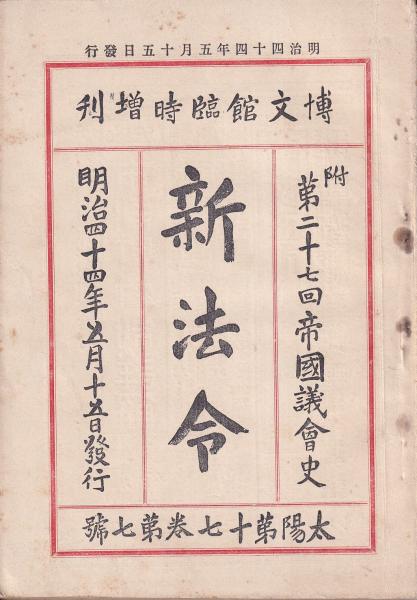 明治四十四年五月十五日發行
博文館臨時增刊
附
第二十七回帝國議會史
新法令
明治四十四年五月十五日發行
太陽第十七卷第七號